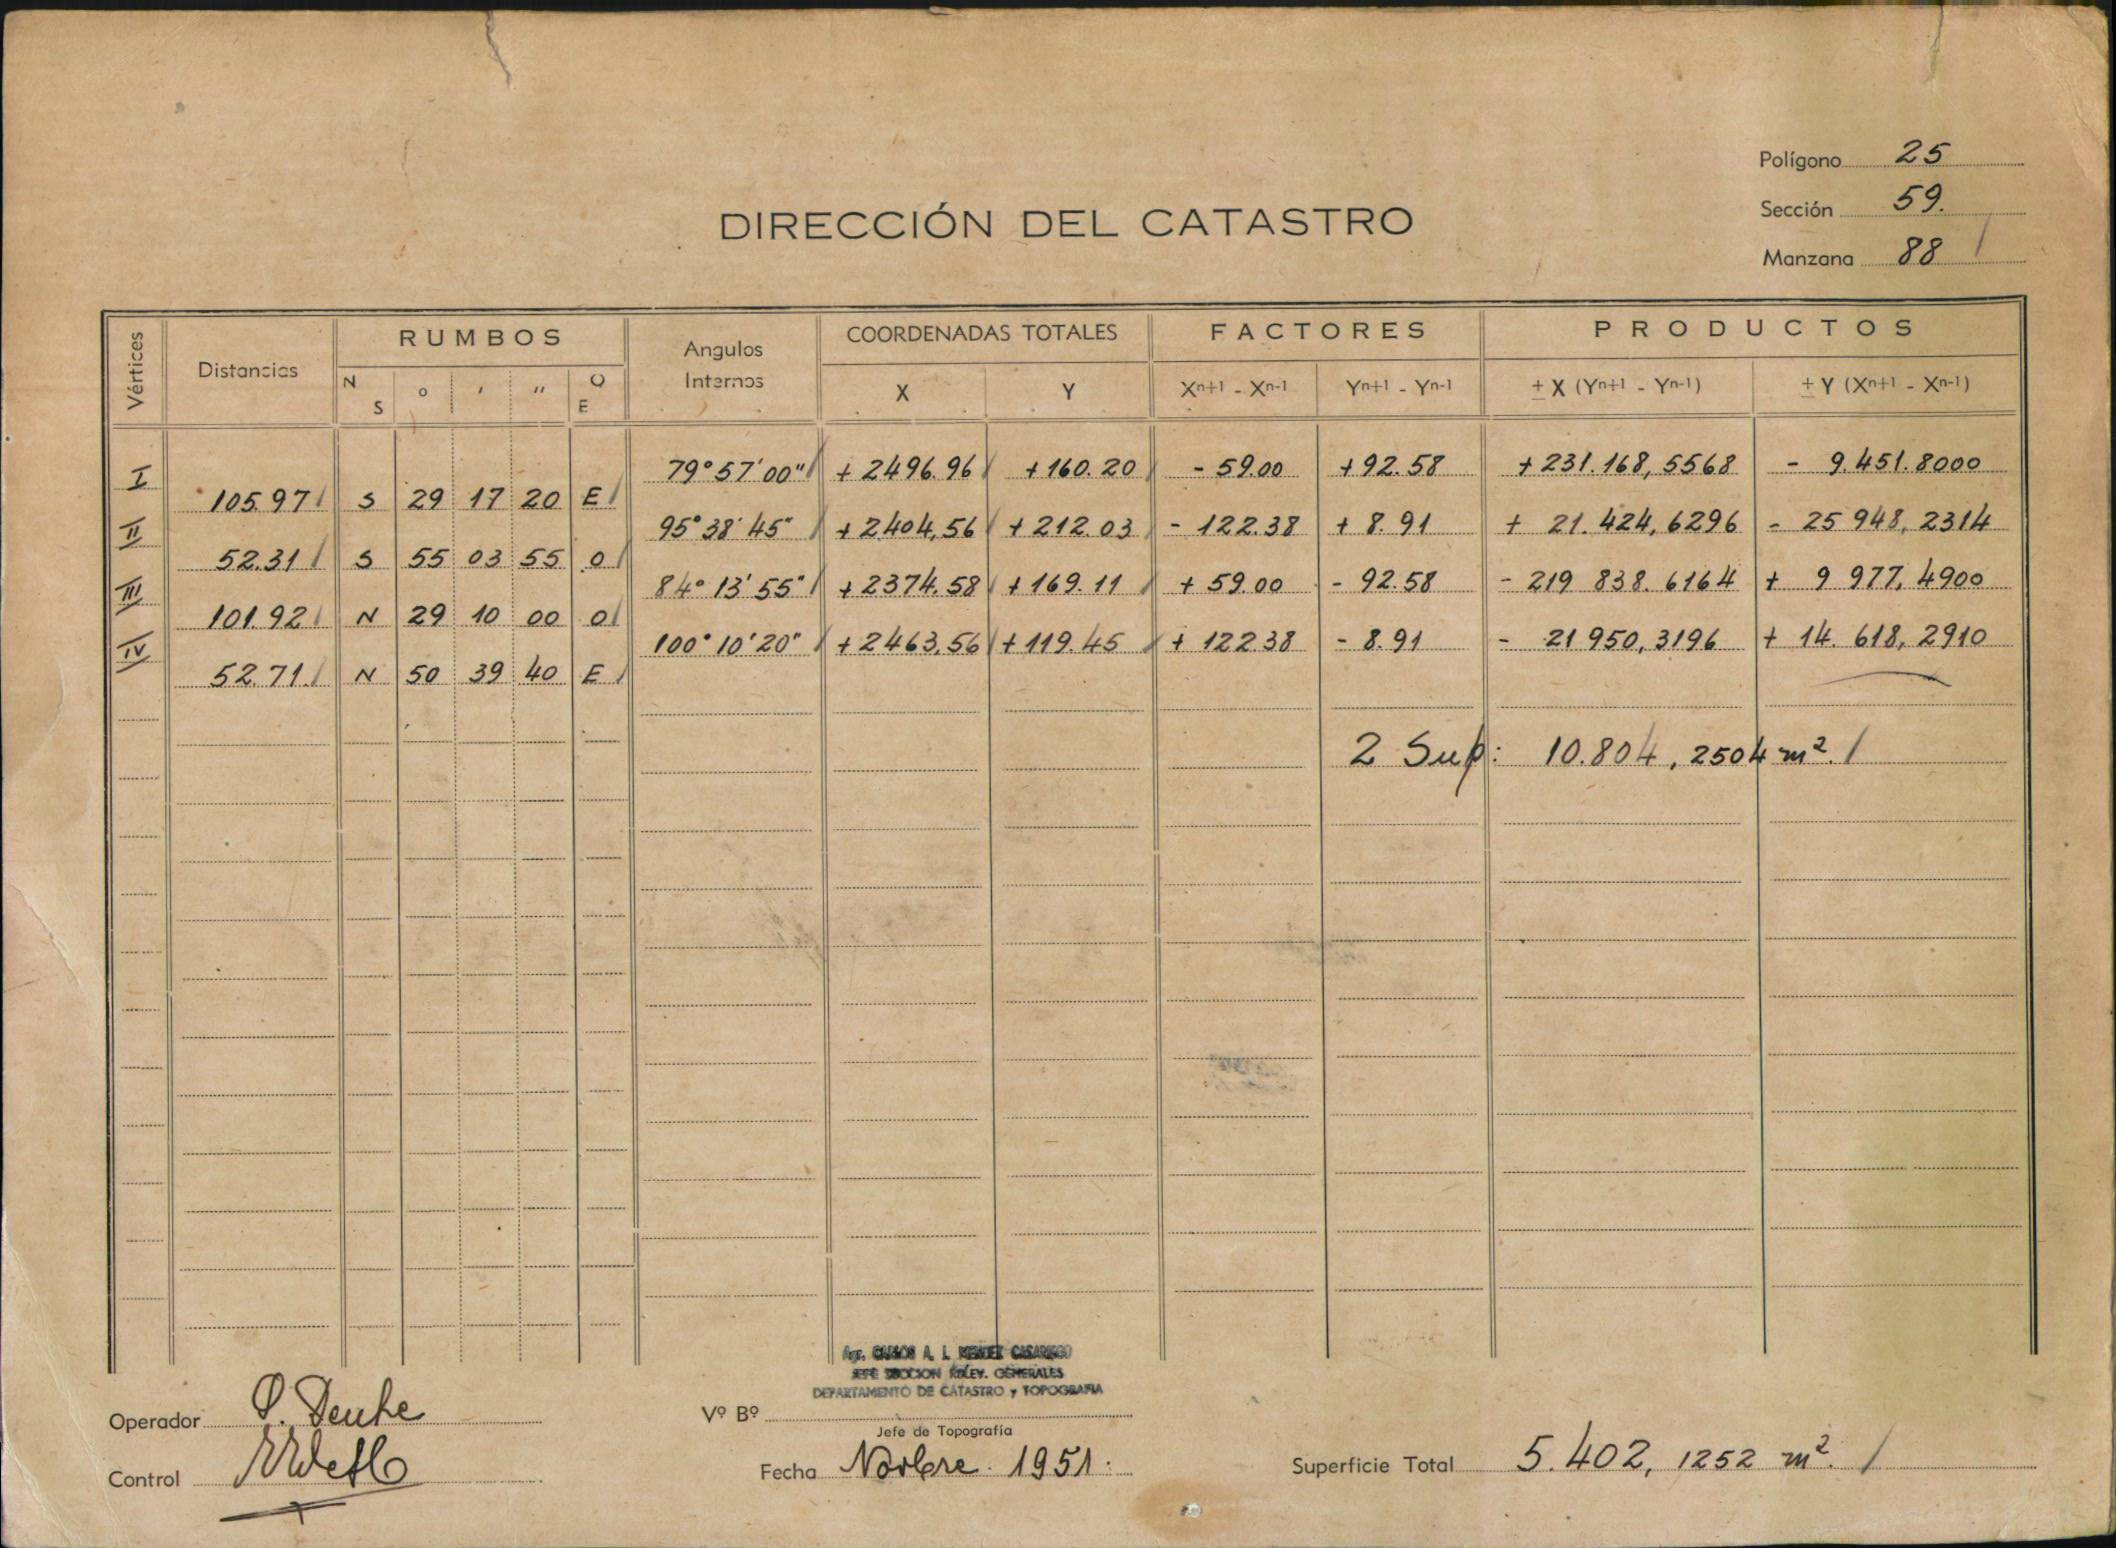 Polígono 25
Sección 59.
Manzana 88
DIRECCIÓN DEL CATASTRO
Vértices Distancias RUMBOS Angulos Internos COORDENADAS TOTALES FACTORES PRODUCTOS
N S o ' '' O E X Y Xn+1 - Xn-1 Yn+1 - Yn-1 ± X (Yn+1 - Yn-1) ± Y (Xn+1 - Xn-1)
I 79° 57' 00" + 2496.96 + 160.20 - 59.00 + 92.58 + 231.168,5568 - 9.451.8000
105.97 S 29 17 20 E
II 95° 38' 45" + 2.404,56 + 212.03 - 122.38 + 8.91 + 21.424,6296 - 25 948,2314
52.31 S 55 03 55 O
III 84° 13' 55" + 2374.58 + 169.11 + 59.00 - 92.58 - 219 838.6164 + 9 977,4900
101.92 N 29 10 00 O
IV 100° 10' 20" + 2463,56 + 119.45 + 122.38 - 8.91 - 21 950,3196 + 14.618,2910
52.71. N 50 39 40 E
2 Sup: 10.804,2504 m².
Agr. CARLOS A. L. MENDEZ CASARIEGO
JEFE SECCION RELEV. GENERALES
DEPARTAMENTO DE CATASTRO y TOPOGRAFIA
Operador
Vº Bº
Jefe de Topografía
Control
Fecha Novbre. 1951.
Superficie Total 5.402,1252 m².